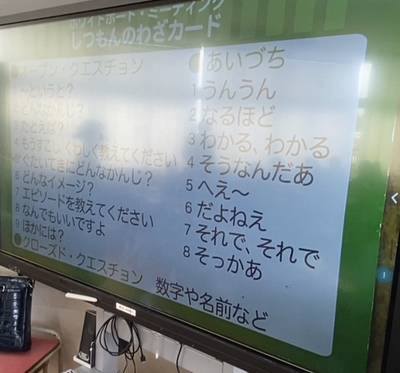 ホワイトボード・ミーティング
しつもんのわざカード
オープン・クエスチョン
1 〜というと?
2 どんなかんじ?
3 たとえば?
4 もうすこしくわしく教えてください
5 ぐたいてきにどんなかんじ?
6 どんなイメージ?
7 エピソードを教えてください
8 なんでもいいですよ
9 ほかには?
クローズド・クエスチョン
数字や名前など
あいづち
1 うんうん
2 なるほど
3 わかる、わかる
4 そうなんだあ
5 へえ〜
6 だよねえ
7 それで、それで
8 そっかあ